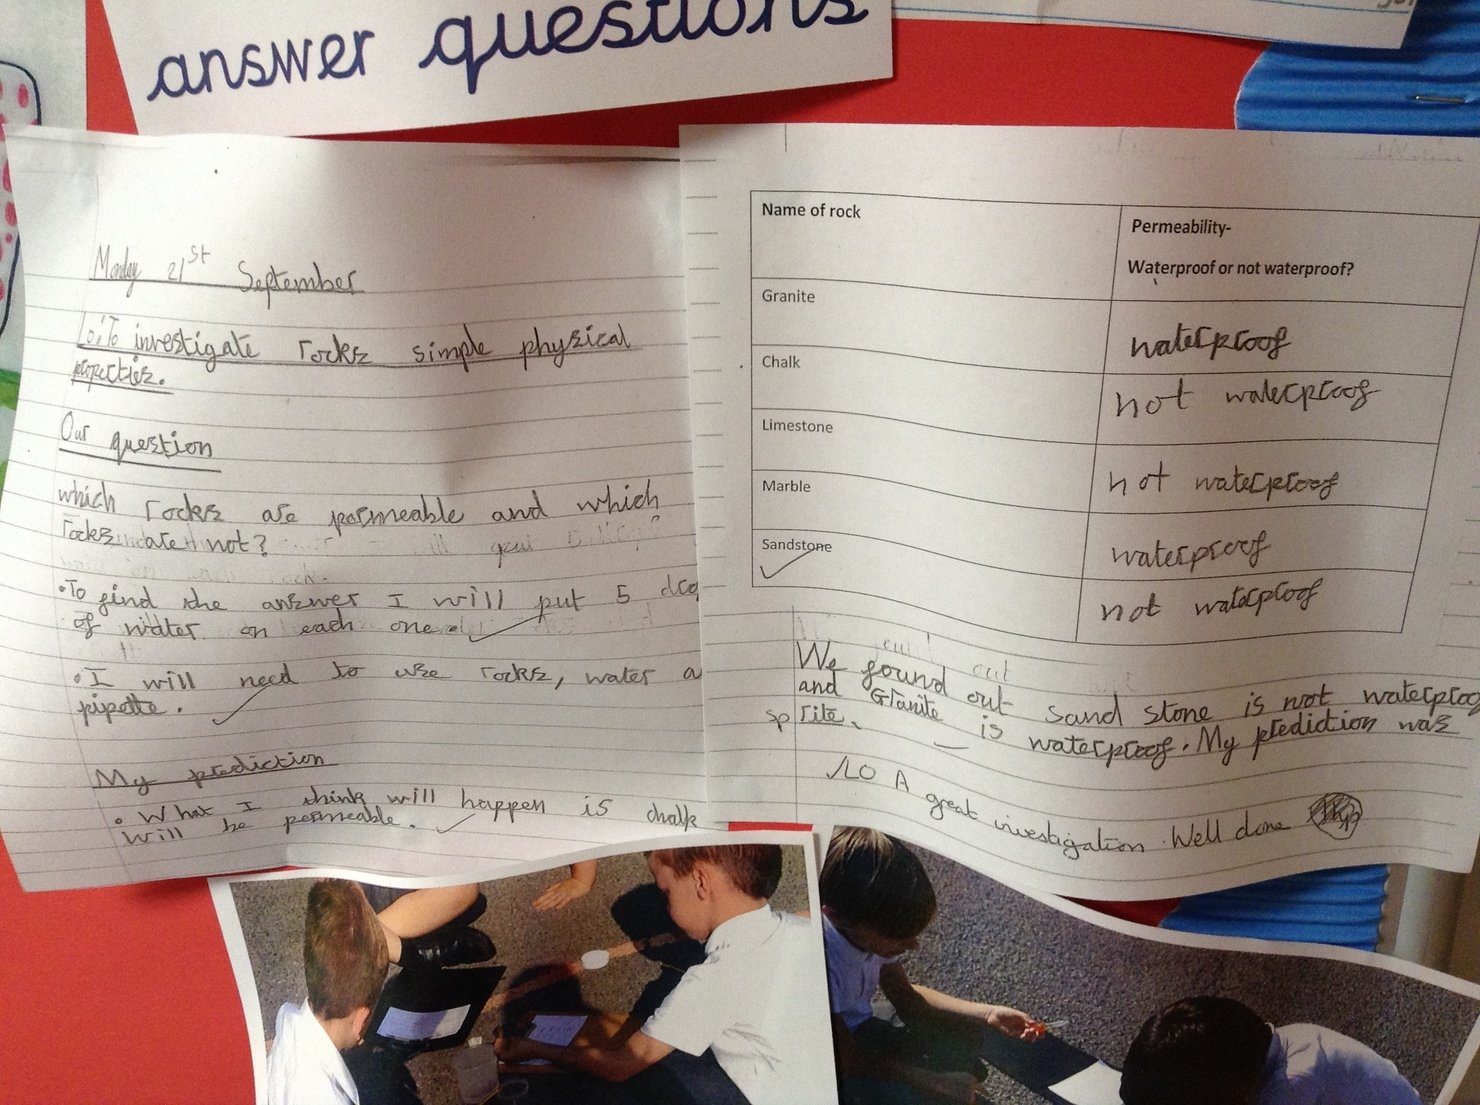 answer questions
Monday 21st September
L.o: To investigate rocks simple physical
properties.
Our question
which rocks are permeable and which
rocks are not?
• To find the answer I will put 5 drop
of water on each one.
• I will need to use rocks, water a
pipette.
My prediction
• What I think will happen is chalk
will be permeable.
Name of rock
Permeability-
Waterproof or not waterproof?
Granite
waterproof
Chalk
not waterproof
Limestone
not waterproof
Marble
waterproof
Sandstone
not waterproof
We found out sand stone is not waterproof
and Granite is waterproof. My prediction was
sp rite.
LO A great investigation. Well done